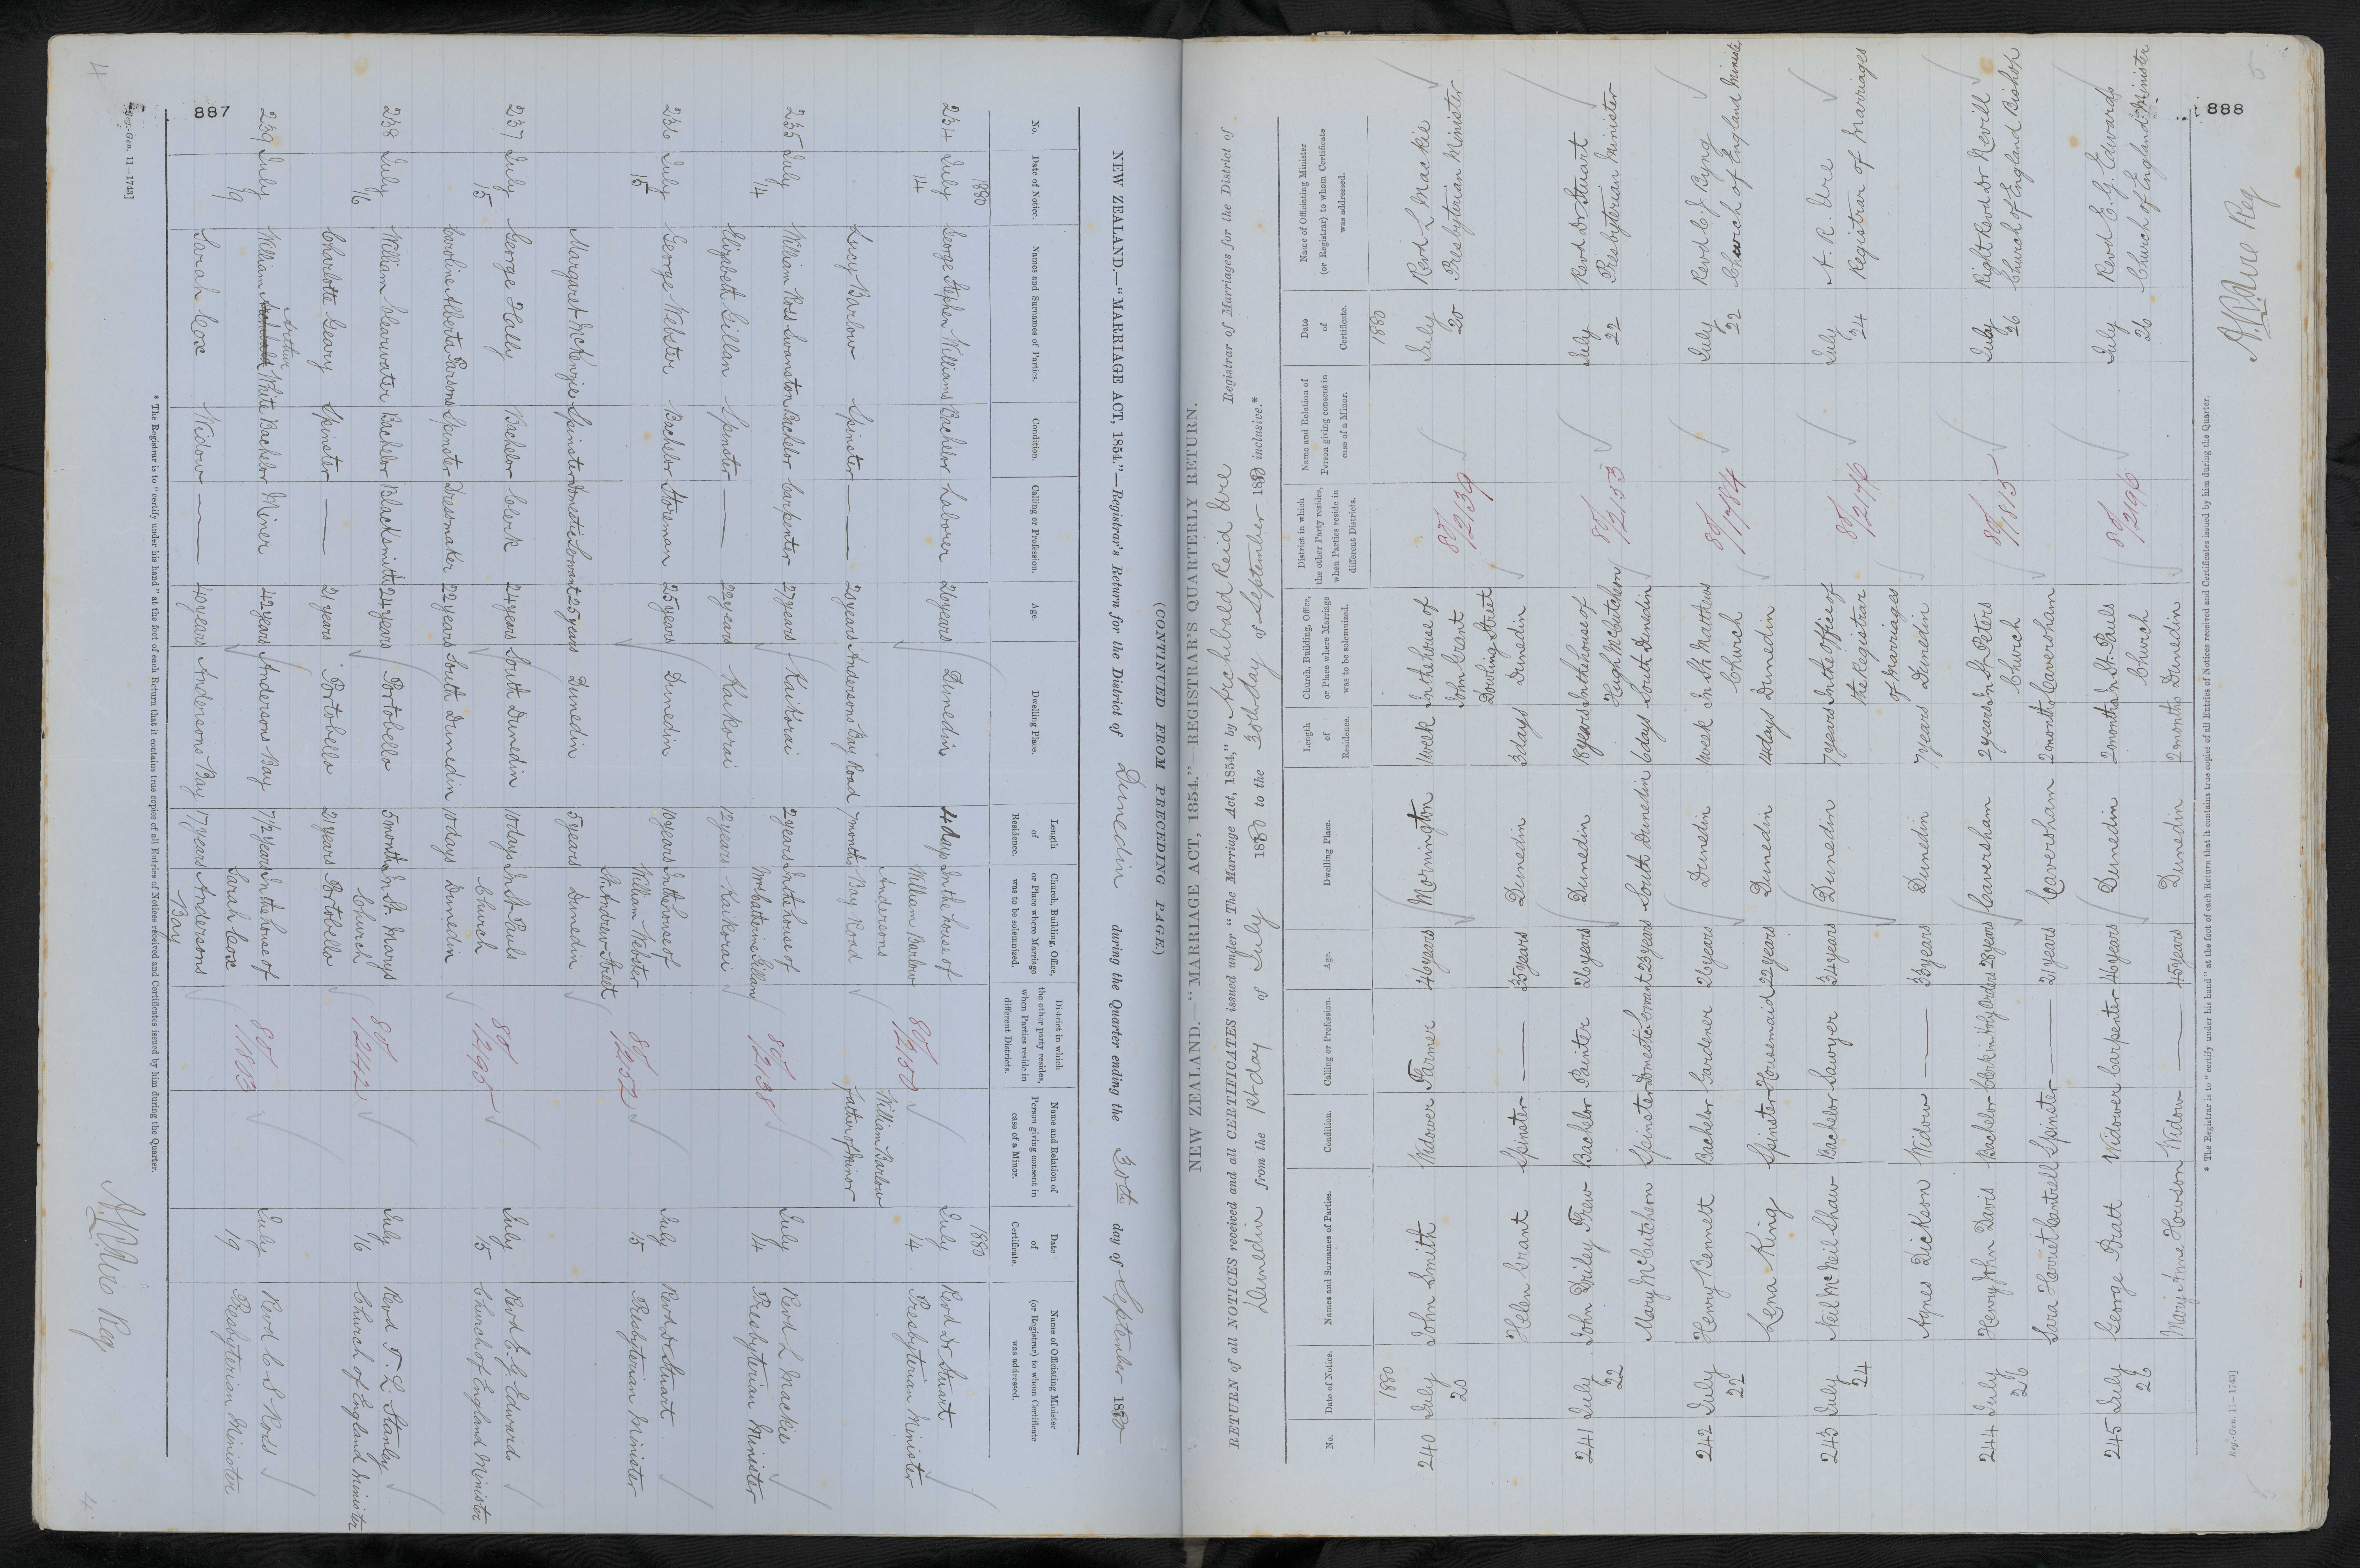 887
4
(CONTINUED FROM PRECEDING PAGE)
NEW ZEALAND.—"MARRIAGE ACT, 1854."—Registrar's Return for the District of Dunedin during the Quarter ending the 30th day of September 1880
No.
Date of Notice.
Names and Surnames of Parties.
Condition.
Calling or Profession.
Age.
Dwelling Place.
Length of Residence.
Church, Building, Office, or Place where Marriage was to be solemnized.
District in which the other party resides, when Parties reside in different Districts.
Name and Relation of Person giving consent in case of a Minor.
Date of Certificate.
Name of Officiating Minister (or Registrar) to whom Certificate was addressed.
1880 1880
234 July 14 George Stephen Williams Bachelor Laborer 26 years Dunedin 4 days In the house of William Barlow Andersons Bay Road 80/2150 William Barlow Father of Minor July 14 Revd Dr Stuart Presbyterian Minister
Lucy Barlow Spinster — 20 years Andersons Bay Road 7 months
235 July 14 William Ross Swanston Bachelor Carpenter 27 years Kaikorai 2 years In the house of Mrs Catherine Gillan Kaikorai 80/2138 July 14 Revd L Mackie Presbyterian Minister
Elizabeth Gillan Spinster — 22 years Kaikorai 12 years
236 July 15 George Webster Bachelor Storeman 25 years Dunedin 10 years In the house of William Webster St. Andrew Street Dunedin 80/2152 July 15 Revd Dr Stuart Presbyterian Minister
Margaret McKenzie Spinster Domestic Servant 25 years Dunedin 5 years
237 July 15 George Hally Bachelor Clerk 24 years South Dunedin 10 days In St. Pauls Church Dunedin 80/2195 July 15 Revd E. G. Edwards Church of England Minister
Caroline Alberta Parsons Spinster Dressmaker 22 years South Dunedin 10 days
238 July 16 William Clearwater Bachelor Blacksmith 24 years Portobello 5 months In St. Marys Church Portobello 80/2442 July 16 Revd T. L. Stanley Church of England Minister
Charlotte Geary Spinster — 21 years Portobello 21 years
239 July 19 William Arthur White Bachelor Miner 42 years Andersons Bay 7 1/2 years In the house of Sarah Coxe Andersons Bay 80/1803 July 19 Revd C S Ross Presbyterian Minister
Sarah Coxe Widow — 40 years Andersons Bay 17 years
* The Registrar is to "certify under his hand" at the foot of each Return that it contains true copies of all Entries of Notices received and Certificates issued by him during the Quarter.
Reg.-Gen. 11—1743]
A R Ure Reg
4
888
5
NEW ZEALAND.—"MARRIAGE ACT, 1854."—REGISTRAR'S QUARTERLY RETURN.
RETURN of all NOTICES received and all CERTIFICATES issued under "The Marriage Act, 1854," by Archibald Reid Ure Registrar of Marriages for the District of
Dunedin from the 1st day of July 1880 to the 30th day of September 1880 inclusive.*
No.
Date of Notice.
Names and Surnames of Parties.
Condition.
Calling or Profession.
Age.
Dwelling Place.
Length of Residence.
Church, Building, Office, or Place where Marriage was to be solemnized.
District in which the other Party resides, when Parties reside in different Districts.
Name and Relation of Person giving consent in case of a Minor.
Date of Certificate.
Name of Officiating Minister (or Registrar) to whom Certificate was addressed.
1880 1880
240 July 20 John Smith Widower Farmer 46 years Mornington 1 week In the house of John Grant Dowling Street Dunedin 80/2139 July 20 Revd L Mackie Presbyterian Minister
Helen Grant Spinster — 35 years Dunedin 3 days
241 July 22 John Driley Trew Bachelor Painter 26 years Dunedin 18 years In the house of Hugh McCutcheon South Dunedin 80/2153 July 22 Revd Dr Stuart Presbyterian Minister
Mary McCutcheon Spinster Domestic Servant 23 years South Dunedin 6 days
242 July 22 Henry Bennett Bachelor Gardener 26 years Dunedin 1 week In St. Matthews Church Dunedin 80/1784 July 22 Revd C. J. Byng Church of England Minister
Lena King Spinster Housemaid 22 years Dunedin 14 days
243 July 24 Neil McNeil Shaw Bachelor Sawyer 34 years Dunedin 7 years In the Office of the Registrar of Marriages Dunedin 80/2146 July 24 A. R. Ure Registrar of Marriages
Agnes Dickson Widow — 33 years Dunedin 7 years
244 July 26 Henry John Davis Bachelor Clerk in Holy Orders 28 years Caversham 2 years In St. Peters Church Caversham 80/1815 July 26 Right Revd Dr Nevill Church of England Bishop
Sara Harriet Cantrell Spinster — 21 years Caversham 2 months
245 July 26 George Pratt Widower Carpenter 46 years Dunedin 2 months In St. Pauls Church Dunedin 80/2196 July 26 Revd E. G. Edwards Church of England Minister
Mary Anne Howson Widow — 45 years Dunedin 2 months
* The Registrar is to "certify under his hand" at the foot of each Return that it contains true copies of all Entries of Notices received and Certificates issued by him during the Quarter.
Reg.-Gen. 11—1743]
A R Ure Reg
5